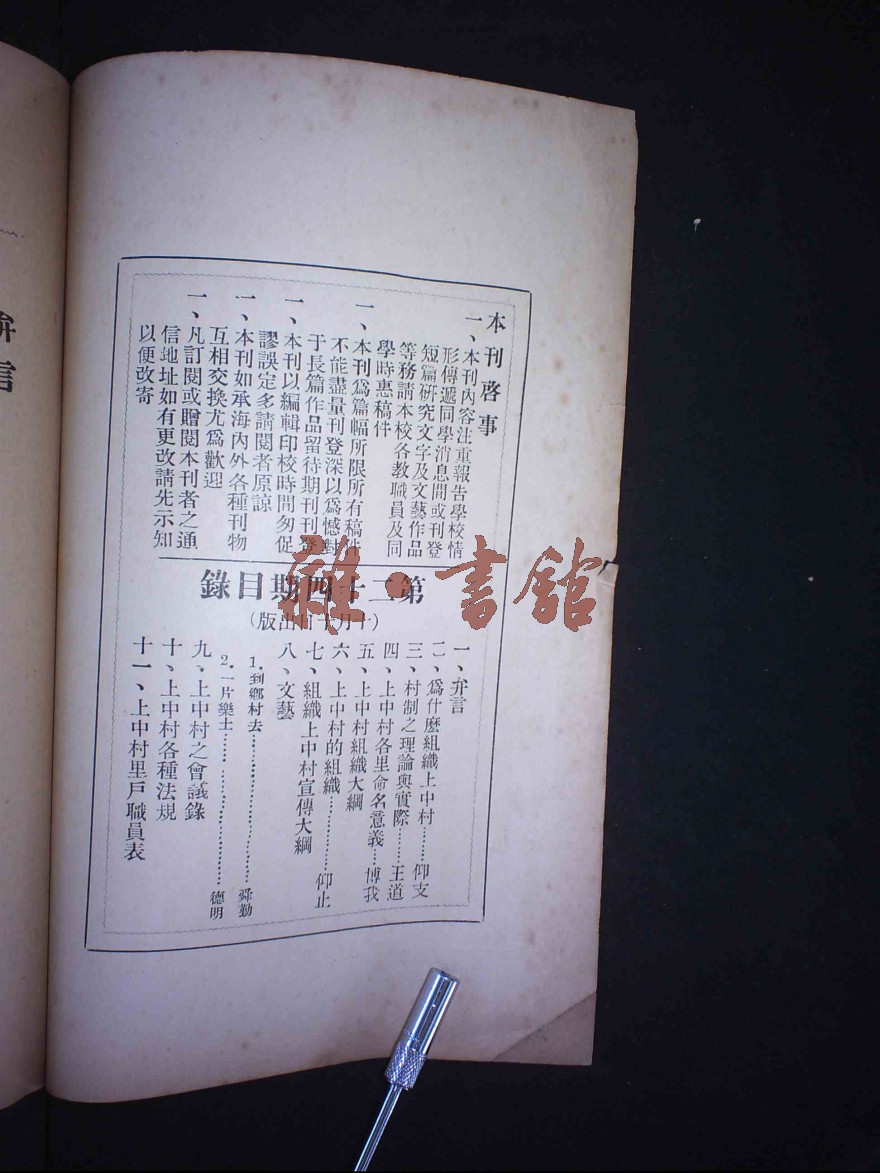 本刊啓事
一、本刊內容注重報告學校情
形傳遞同學消息間或刊登
短篇硏究文字及文藝作品
等務請本校各教職員及同
學時惠稿件
一、本刊爲篇幅所限所有稿件
不能盡量刊登深以爲憾對
于長篇作品留待期刊刊登
一、本刊以編輯印校時間匆促
謬誤定多請閱者原諒
一、本刊如承海內外各種刊物
互相交換尤爲歡迎
一、凡訂閱或贈閱本刊者之通
信地址如有更改請先示知
以便改寄
第二十四期目錄
(十月十日出版)
一、弁言
二、爲什麽組織上中村……仰支
三、村制之理論與實際……王道
四、上中村各里命名意義…博我
五、上中村組織大綱
六、上中村的組織…………仰止
七、組織上中村宣傳大綱
八、文藝
1.到鄕村去……………………舜勤
2.一片樂土……………………德明
九、上中村之會議錄
十、上中村各種法規
十一、上中村里戶職員表
弁言
雜·書館